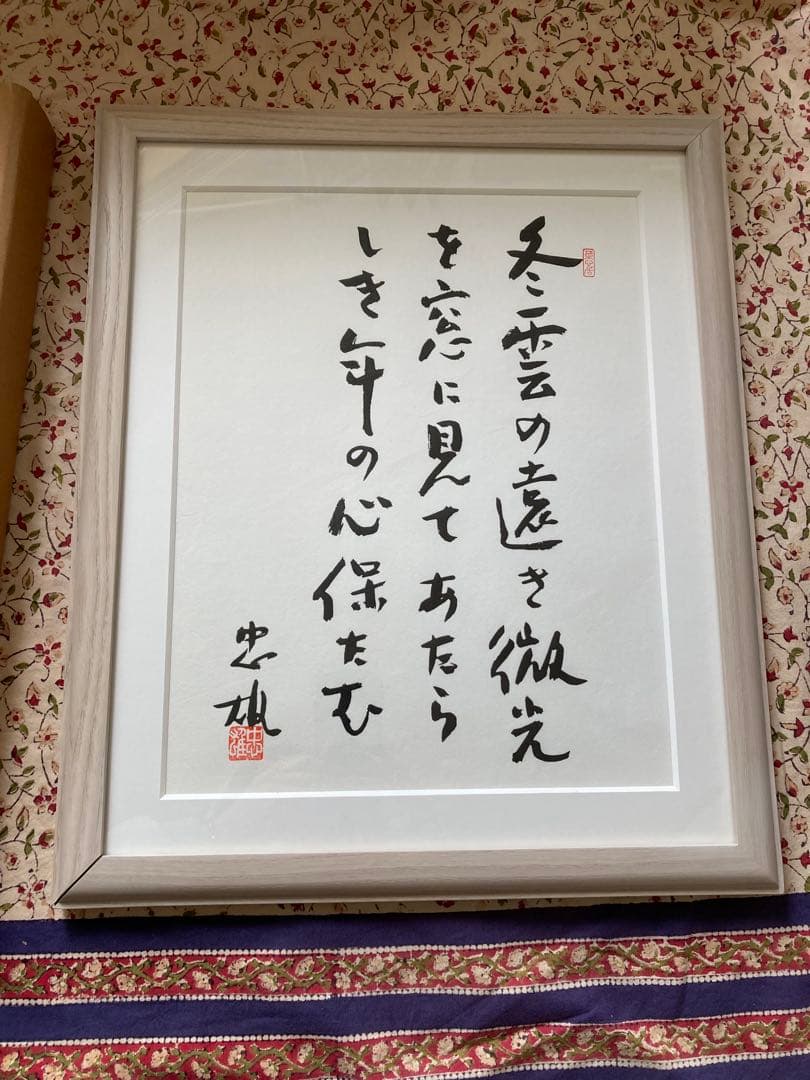 冬雲の遠き微光
を窓に見てあたら
しき年の心保たむ
忠雄
忠雄